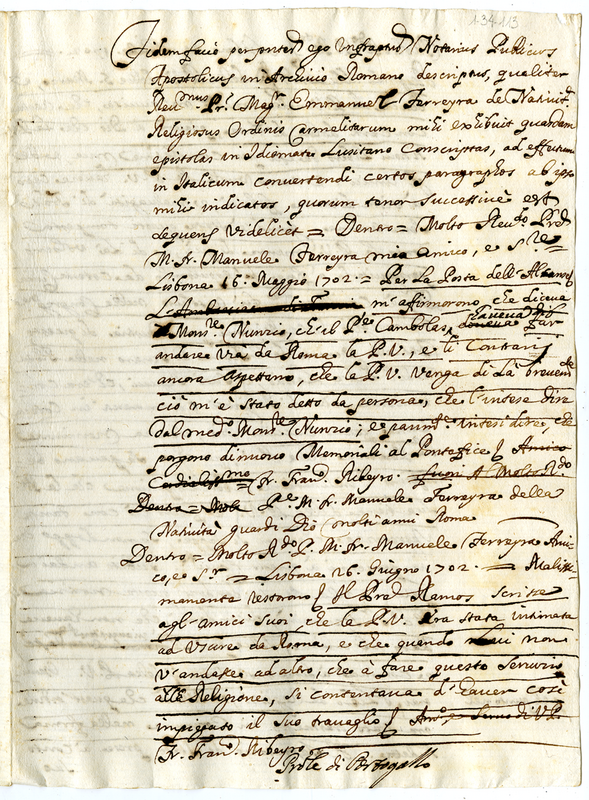 134 113
Fidem facio per pntes ego Infraptus Notarius Publicus
Apostolicus in Archivio Romano descriptus, qualiter
Reu.dmus Pr. Mag.r Emmanuel Ferreyra de Nativit.
Religiosus Ordinis Carmelitarum mihi exhibuit quasdam
epistolas in Idiomate Lusitano Conscriptas, ad effectum
in Italicum convertendi certos paragraphos ab ipso
mihi indicatos, quorum tenor successive est
sequens videlicet = Dentro = Molto Reu.do Pred.
M. Fr. Manuele Ferreyra mio Amico, e S.re =
Lisbona 16. Maggio 1702. = Per La Posta dell'
m'affirmorono, che diceva
Mons.re Nunzio, che il P.re Cambolas, haveva
andare via da Roma la P.V., e li Contrarij
ancora aspettano, che la P.V. venga di là brevem.te
ciò m'è stato detto da persona, che l'intese dire
dal med.o Mons.re Nunzio; e parim.te intesi dire, che
porgono di nuovo Memoriali al Pontefice
Fr. Fran.co Ribeyro. fuori A Molto R.do
Dentro = P.re M. Fr. Manuele Ferreyra della
Natività guardi Dio molti anni Roma
Dentro = Molto R.do P. M. Fr. Manuele Ferreyra Ami-
co, e S.r = Lisbona 26. Giugno 1702. = Malissi-
mamente restorono Il Pred. Ramos scrisse
agl'amici suoi che la P.V. era stata intimata
ad uscire da Roma, e che quando non
v'andasse ad altro, che a fare questo servizio
alla Religione, si contentava d'haver così
impiegato il suo travaglio Servo di V.P.
Fr. Fran.co Ribeyro
di Portogallo